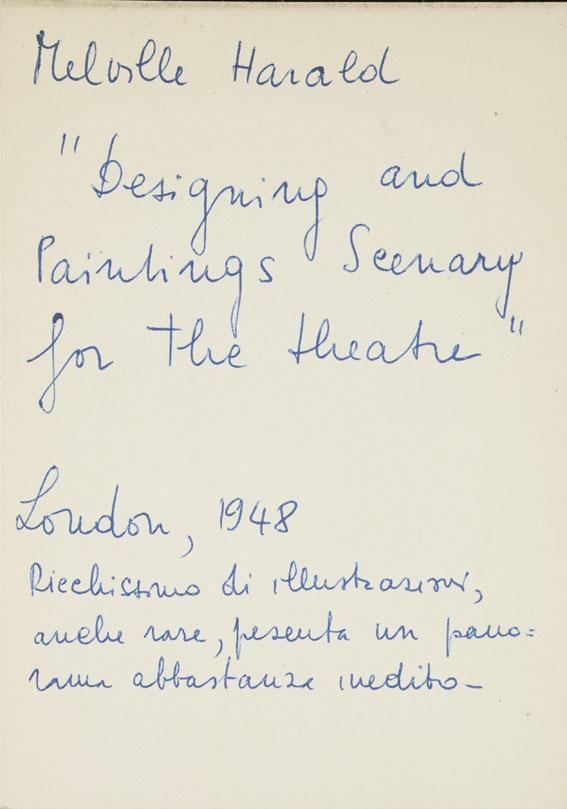 Melville Harald
"Designing and
Paintings Scenary
for the theatre"
London, 1948
Ricchissimo di illustrazioni,
anche rare, pesenta un pano=
rama abbastanza inedito-